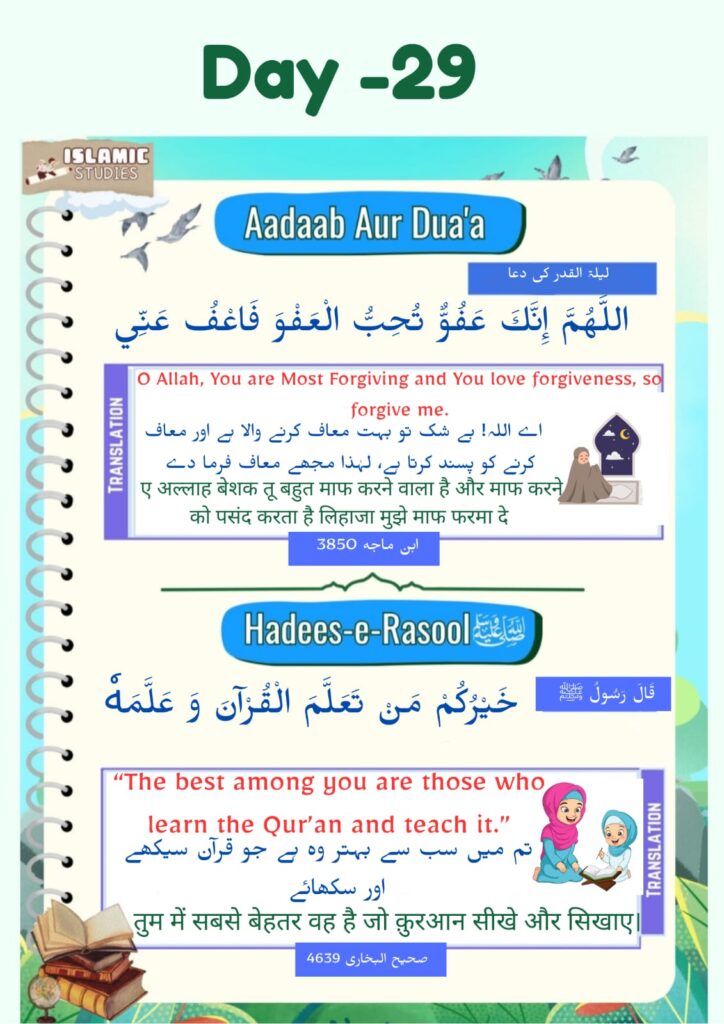 Day -29
ISLAMIC
STUDIES
Aadaab Aur Dua'a
لیلۃ القدر کی دعا
اللَّهُمَّ إِنَّكَ عَفُوٌّ تُحِبُّ الْعَفْوَ فَاعْفُ عَنِّي
TRANSLATION
O Allah, You are Most Forgiving and You love forgiveness, so
forgive me.
اے اللہ! بے شک تو بہت معاف کرنے والا ہے اور معاف
کرنے کو پسند کرتا ہے، لہٰذا مجھے معاف فرما دے
ए अल्लाह बेशक तू बहुत माफ करने वाला है और माफ करने
को पसंद करता है लिहाजा मुझे माफ फरमा दे
ابن ماجه 3850
Hadees-e-Rasool ﷺ
قَالَ رَسُولُ ﷺ
خَيْرُكُمْ مَنْ تَعَلَّمَ الْقُرْآنَ وَ عَلَّمَهٗ
“The best among you are those who
learn the Qur’an and teach it.”
تم میں سب سے بہتر وہ ہے جو قرآن سیکھے
اور سکھائے
तुम में सबसे बेहतर वह है जो क़ुरआन सीखे और सिखाए।
TRANSLATION
صحیح البخاری 4639